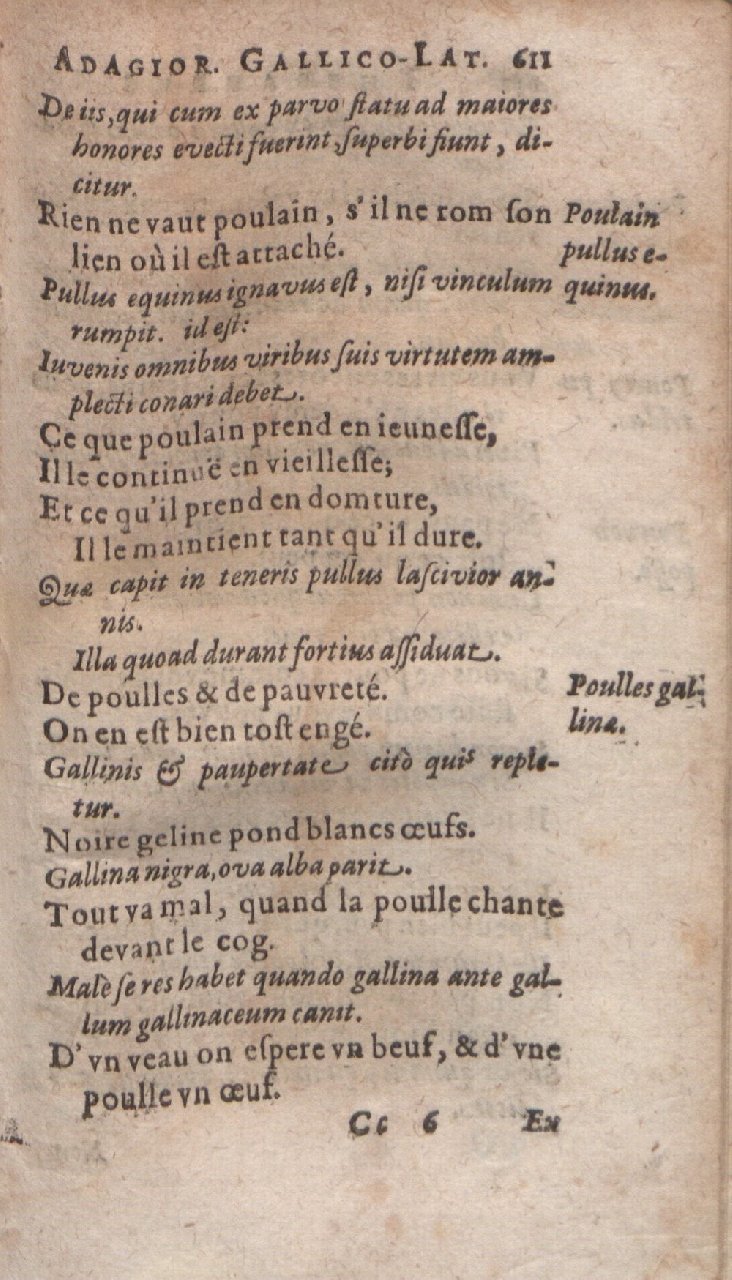 ADAGIOR. GALLICO-LAT. 611
De iis, qui cum ex parvo ſtatu ad maiores
honores evecti fuerint, ſuperbi fiunt, di-
citur.
Rien ne vaut poulain, s'il ne rom ſon
lien où il eſt attaché.
Poulain
pullus e-
quinus.
Pullus equinus ignavus eſt, niſi vinculum
rumpit. id eſt:
Iuvenis omnibus viribus ſuis virtutem am-
plecti conari debet.
Ce que poulain prend en ieuneſſe,
Il le continuë en vieilleſſe;
Et ce qu'il prend en domture,
Il le maintient tant qu'il dure.
Quæ capit in teneris pullus laſcivior an-
nis.
Illa quoad durant fortius aſſiduat.
De poulles & de pauvreté.
Poulles gal-
linæ.
On en eſt bien toſt engé.
Gallinis & paupertate citò quis reple-
tur.
Noire geline pond blancs œufs.
Gallina nigra, ova alba parit.
Tout va mal, quand la poulle chante
devant le cog.
Malè ſe res habet quando gallina ante gal-
lum gallinaceum canit.
D'vn veau on eſpere vn beuf, & d'vne
poulle vn œuf.
Cc 6 Ex